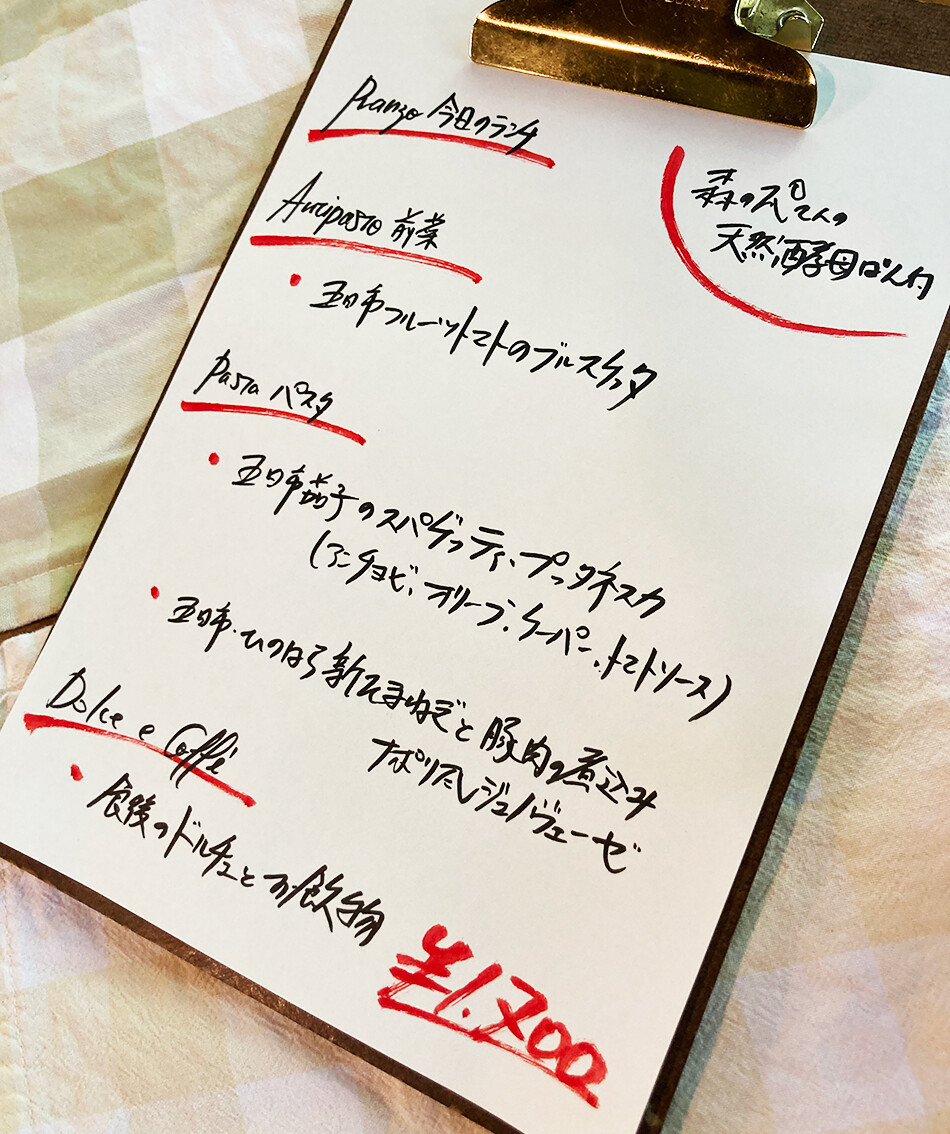 Pranzo 今日のランチ
森のぺてんの
天然酵母ぱん付
Antipasto 前菜
・五日市フルーツトマトのブルスケッタ
Pasta パスタ
・五日市茄子のスパゲッティ・プッタネスカ
(アンチョビ、オリーブ、ケーパー、トマトソース)
・五日市・ひのはら新たまねぎと豚肉の煮込み
ナポリ風ジェノヴェーゼ
Dolce e Caffè
・食後のドルチェとお飲物
¥1,700